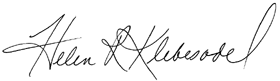 Helen R Klebesadel